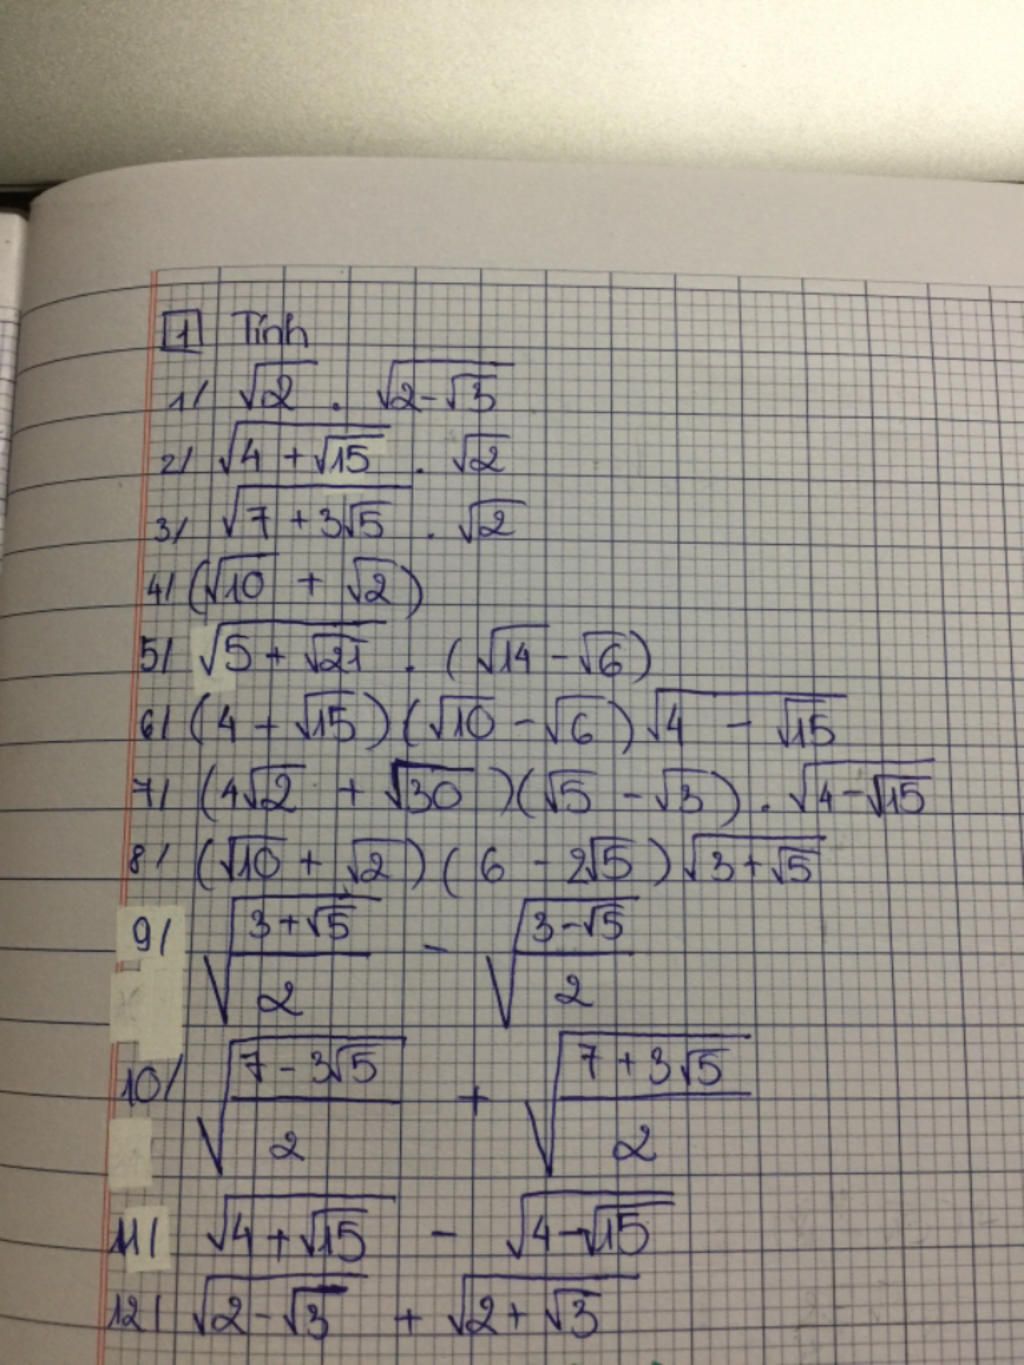 1 Tính
1/ √2 . √(2-√3)
2/ √(4 + √15) . √2
3/ √(7 + 3√5) . √2
4/ (√10 + √2)
5/ √(5 + √21) . (√14 - √6)
6/ (4 + √15)(√10 - √6)√(4 - √15)
7/ (4√2 + √30)(√5 - √3) . √(4 - √15)
8/ (√10 + √2)(6 - 2√5)√(3 + √5)
9/ √((3 + √5)/2) - √((3 - √5)/2)
10/ √((7 - 3√5)/2) + √((7 + 3√5)/2)
11/ √(4 + √15) - √(4 - √15)
12/ √(2 - √3) + √(2 + √3)